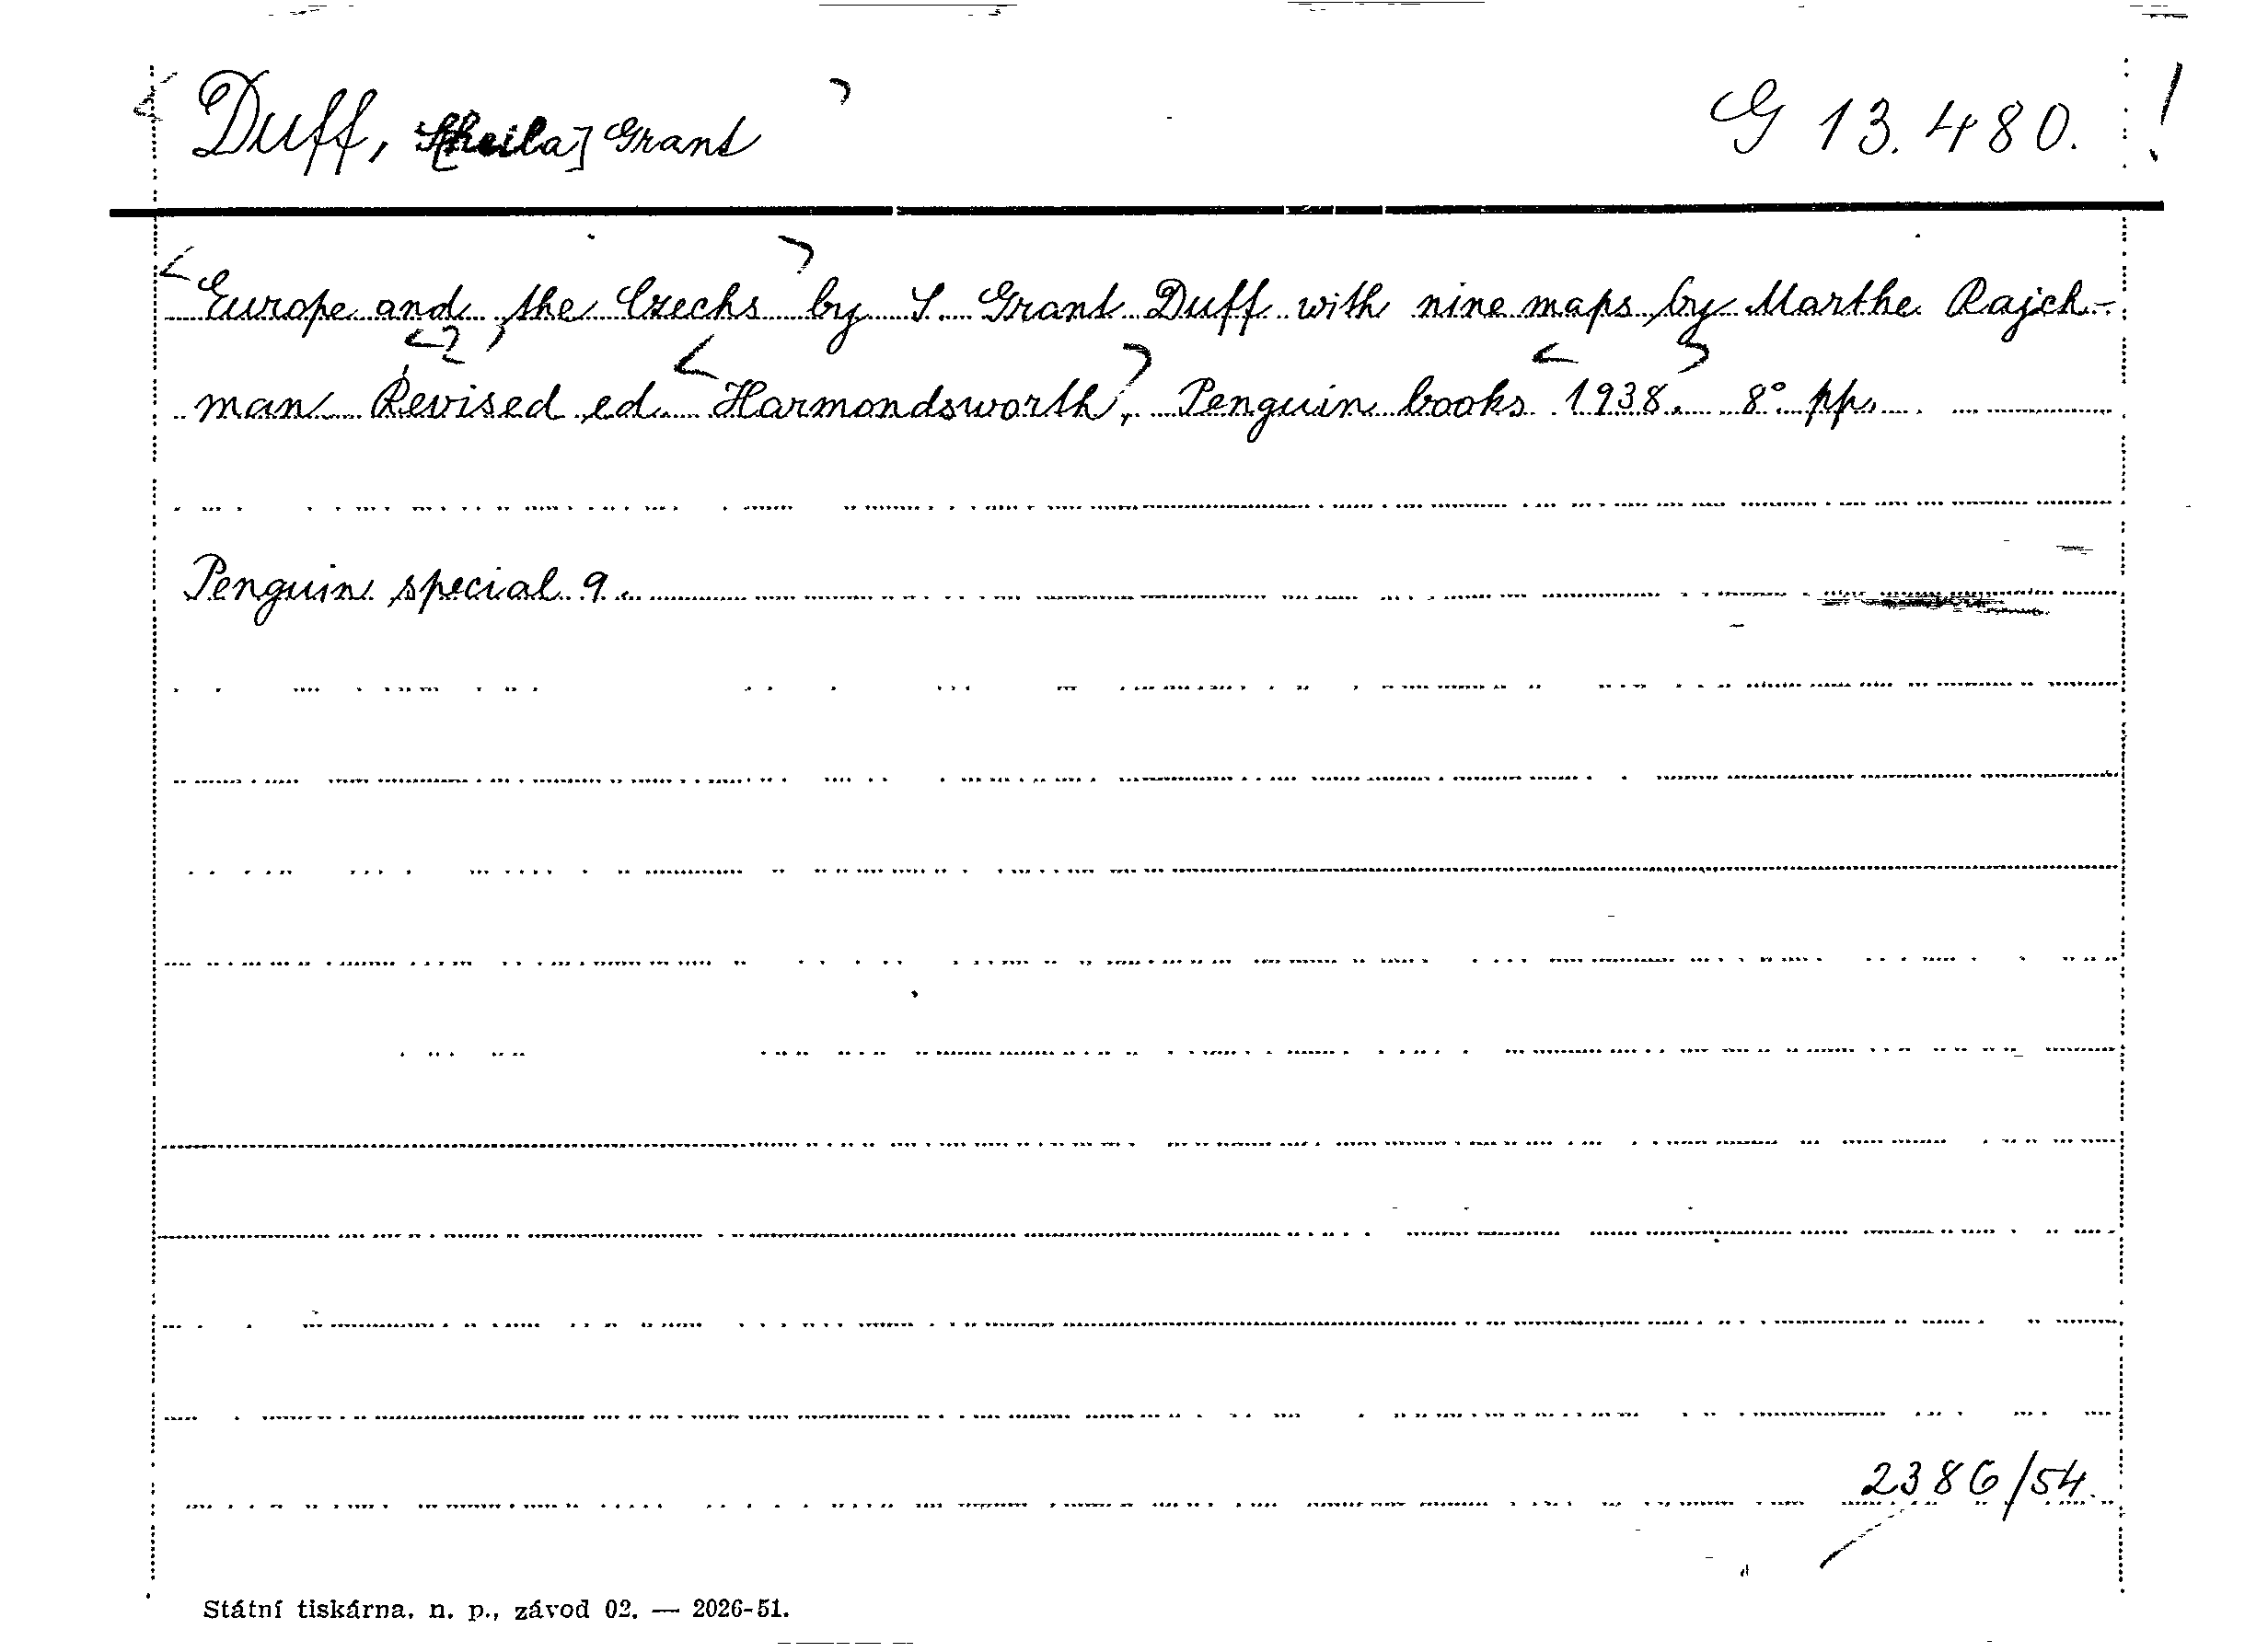 Duff, S[heila] Grant G 13.480. !
Europe and the Czechs by S. Grant Duff with nine maps by Marthe Rajch-
man Revised ed. Harmondsworth, Penguin books 1938. 8° pp.
Penguin special 9.
2386/54.
Státní tiskárna, n. p., závod 02. — 2026-51.